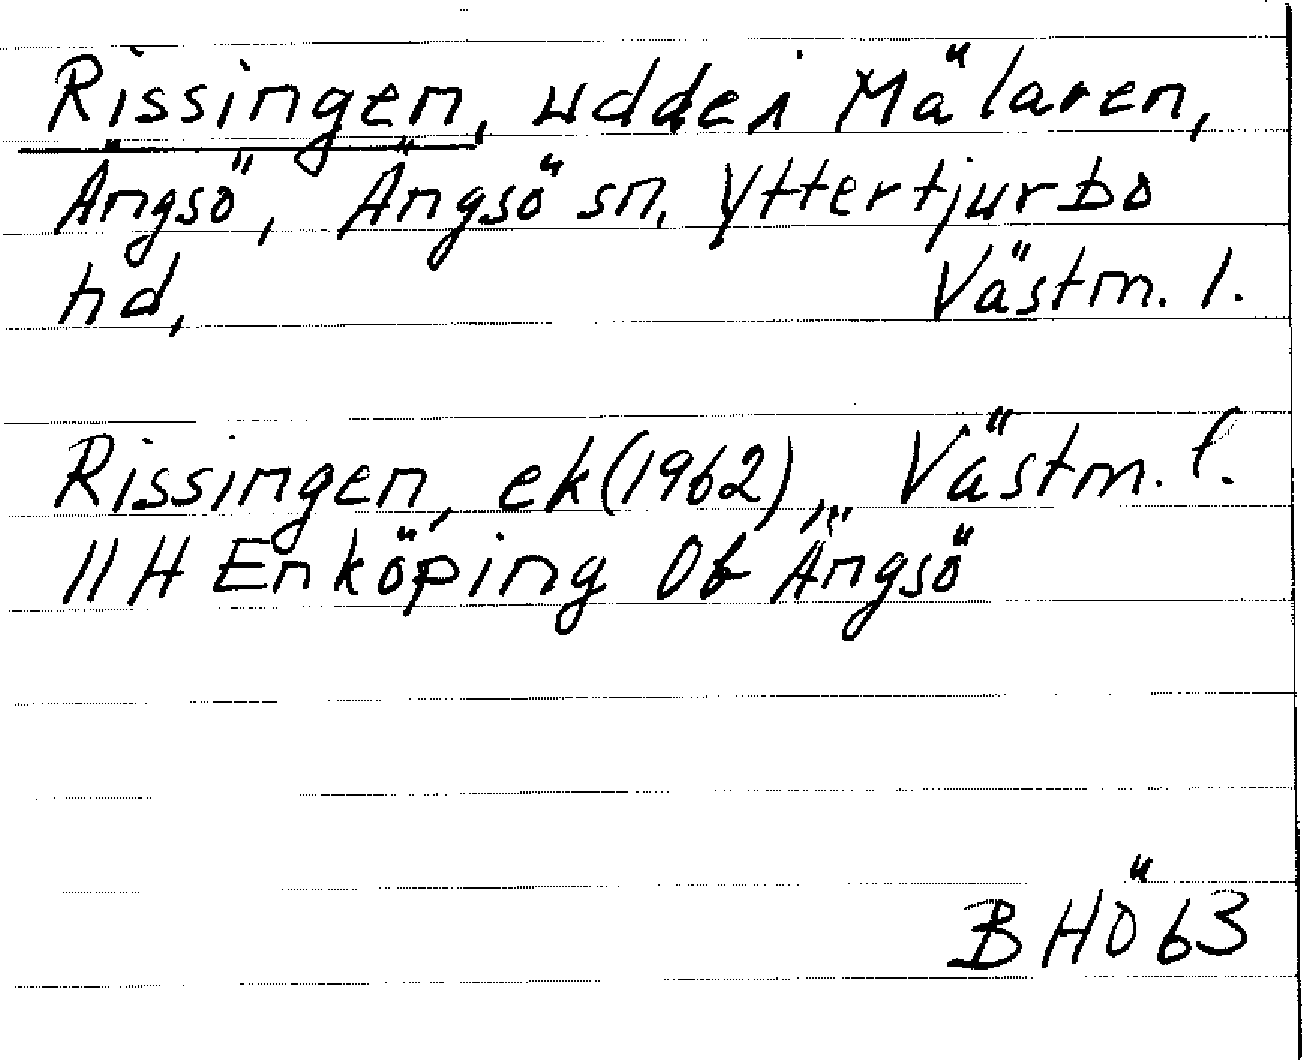 Rissingen, udde i Mälaren,
Ängsö, Ängsö sn, Yttertjurbo
hd, Västm. l.
Rissingen, ek (1962), Västm. l.
11 H Enköping 0b Ängsö
BHÖ 63